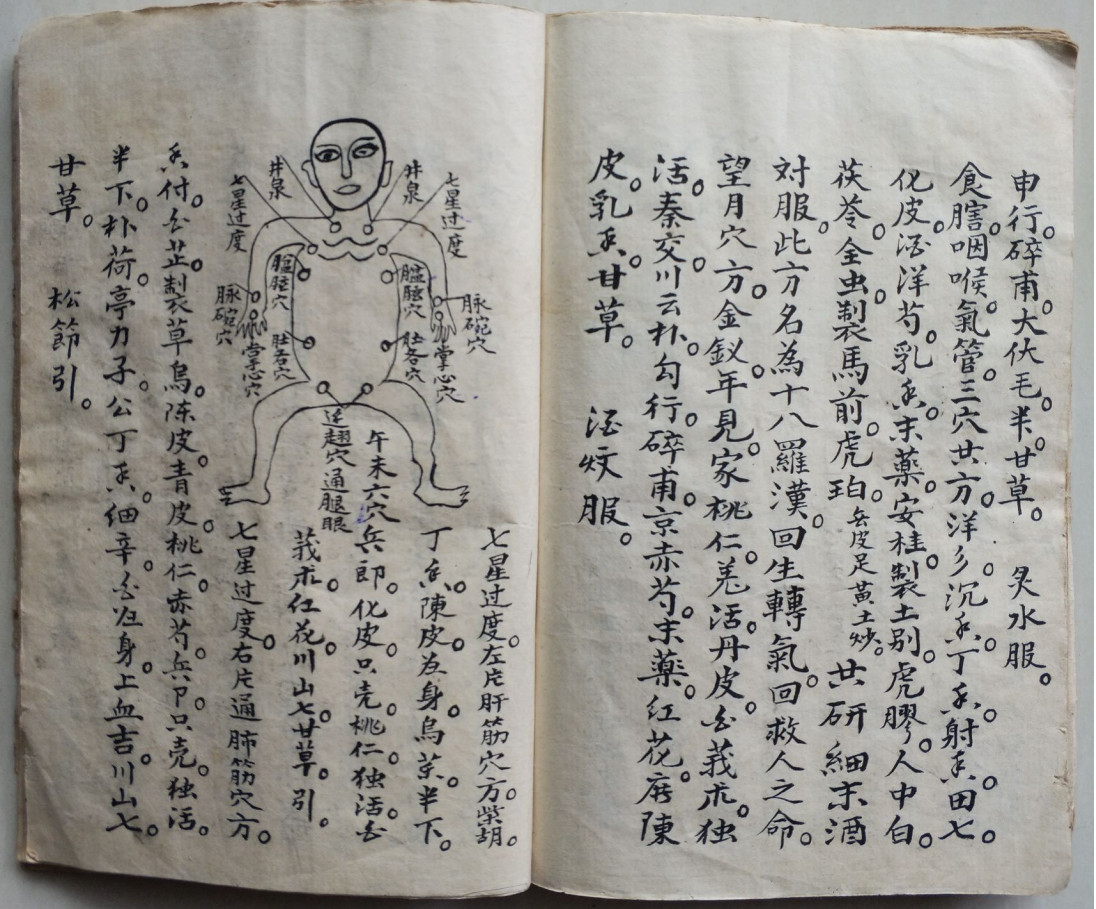 申行。碎甫。大伏毛。半。甘草。 炙水服。
食膪咽喉。氣管。三穴共方。洋彡。沉香。丁香。射香。田七。
化皮。酒洋芍。乳香。末藥。安桂。製土別。虎膠。人中白。
茯苓。全虫。製馬前。虎珀。缶皮足黃土炒。共研細末酒
対服。此方名為十八羅漢。回生轉氣。回救人之命。
望月穴方。金釵。年見。家桃仁。羌活。丹皮。白莪朮。独
活。秦交。川云朴。勾行。碎甫。京赤芍。末藥。紅花。唐陳
皮。乳香。甘草。 酒炆服。
井泉
七星过度
井泉
七星过度
膃脏穴
膃脏穴
脉碗穴
脉碗穴
掌心穴
掌心穴
肚各穴
肚各穴
趐穴通腿眼
午未六穴
七星过度。左片肝筋穴方。柴胡。
丁香。陳皮。烏药。半下。
兵郎。化皮。只壳。桃仁。独活。
莪朮。红花。川山七。甘草。引。
七星过度。右片通肺筋穴方。
香付。白芷。製草烏。陈皮。青皮。桃仁。赤芍。兵卩。只壳。独活。
半下。朴荷。亭力子。公丁香。细辛。白归身。上血吉。川山七。
甘草。 松節引。